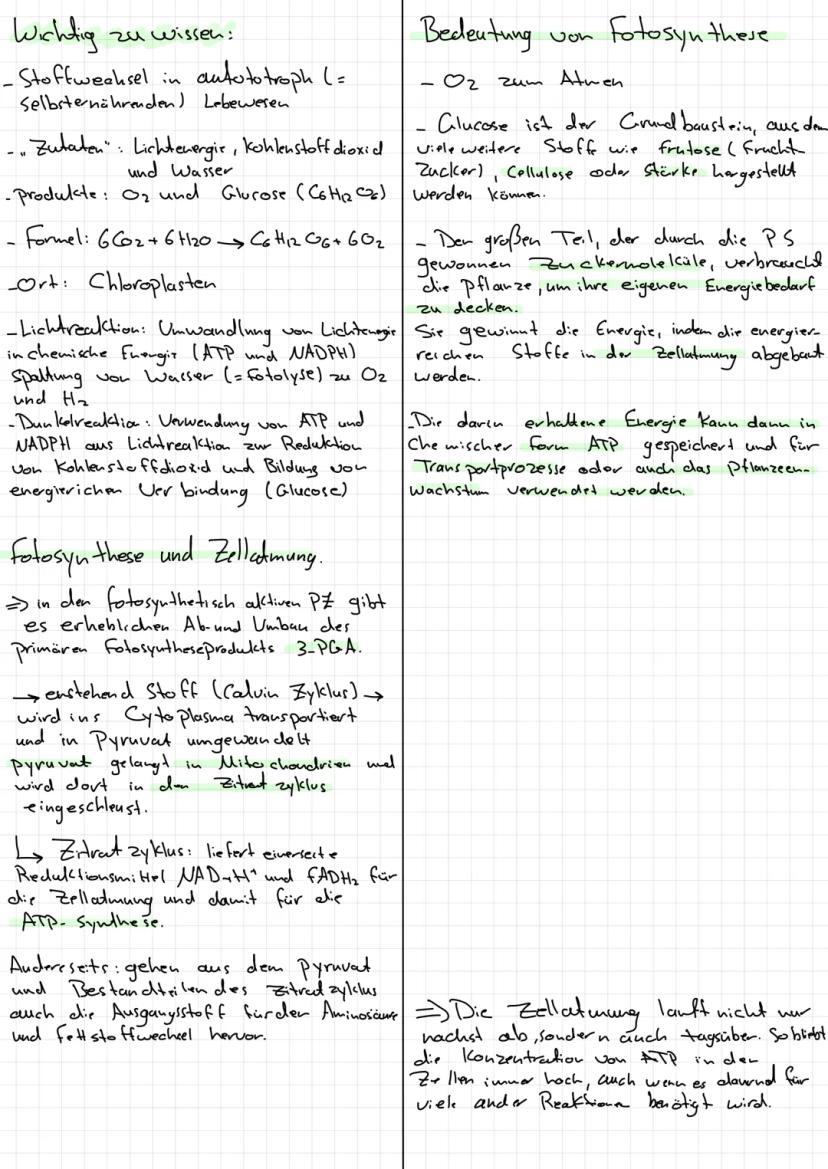 Wichtig zu wissen:
- Stoffwechsel in autototroph (=
selbsternährenden) Lebewesen
- "Zutaten": Lichtenergie, Kohlenstoffdioxid
und Wasser
- Produkte: O2 und Glucose (C6H12O6)
- Formel: 6CO2 + 6H2O → C6H12O6 + 6O2
- Ort: Chloroplasten
- Lichtreaktion: Umwandlung von Lichtenergie
in chemische Energie (ATP und NADPH)
Spaltung von Wasser (= Fotolyse) zu O2
und H2
- Dunkelreaktion: Verwendung von ATP und
NADPH aus Lichtreaktion zur Reduktion
von Kohlenstoffdioxid und Bildung von
energierichen Verbindung (Glucose)
Fotosynthese und Zellatmung.
⇒ in den fotosynthetisch aktiven PZ gibt
es erheblichen Ab- und Umbau des
primären Fotosyntheseprodukts 3-PGA.
→ enstehend Stoff (Calvin Zyklus) →
wird ins Cytoplasma transportiert
und in Pyruvat umgewandelt
pyruvat gelangt in Mitochondrien und
wird dort in den Zitrat zyklus
eingeschleust.
↳ Zitrat zyklus: liefert einerseits
Reduktionsmittel NAD+H+ und FADH2 für
die Zellatmung und damit für die
ATP-Synthese.
Andereseits: gehen aus dem Pyruvat
und Bestandteilen des Zitratzyklus
auch die Ausgangsstoff für den Aminosäure
und Fettstoffwechsel hervor.
Bedeutung von Fotosynthese
- O2 zum Atmen
- Glucose ist der Grundbaustein, aus dem
viele weitere Stoffe wie frutose (Frucht
Zucker), Cellulose oder Stärke hergestellt
werden können.
- Den großen Teil, der durch die PS
gewonnen Zuckermoleküle, verbraucht
die Pflanze, um ihre eigenen Energiebedarf
zu decken.
Sie gewinnt die Energie, indem die energier-
reichen Stoffe in der Zellatmung abgebaut
werden.
- Die darin erhaltene Energie kann dann in
chemischer form ATP gespeichert und für
Transportprozesse oder auch das Pflanzeen-
wachstum verwendet werden.
⇒ Die Zellatmung läuft nicht nur
nachst ab, sondern auch tagsüber. So bleibt
die Konzentration von ATP in den
Zellen immer hoch, auch wenn es dauernd für
viele ander Reaktionen benötigt wird.